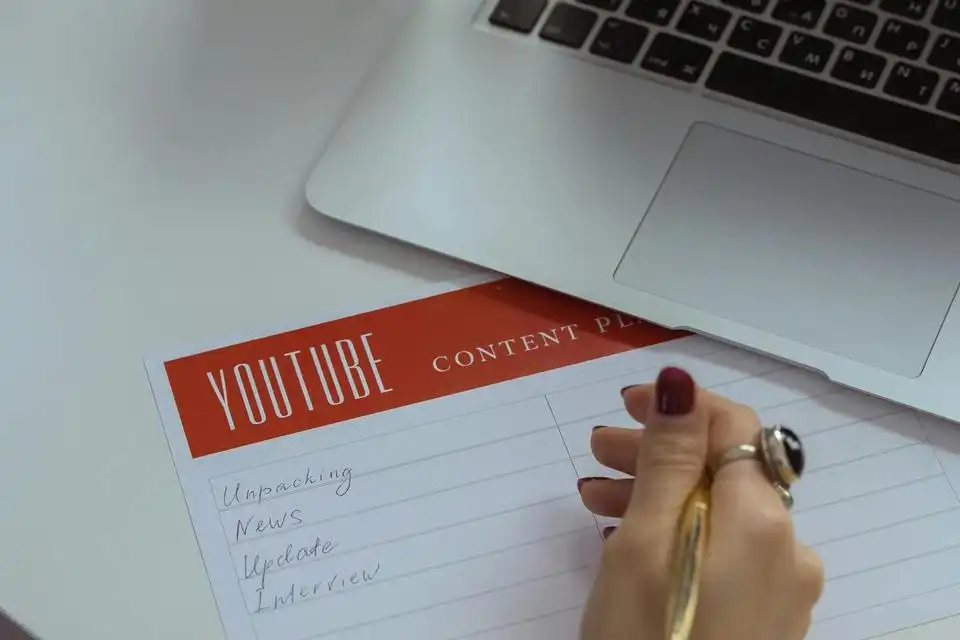 YOUTUBE CONTENT
Unpacking
News
Update
Interview